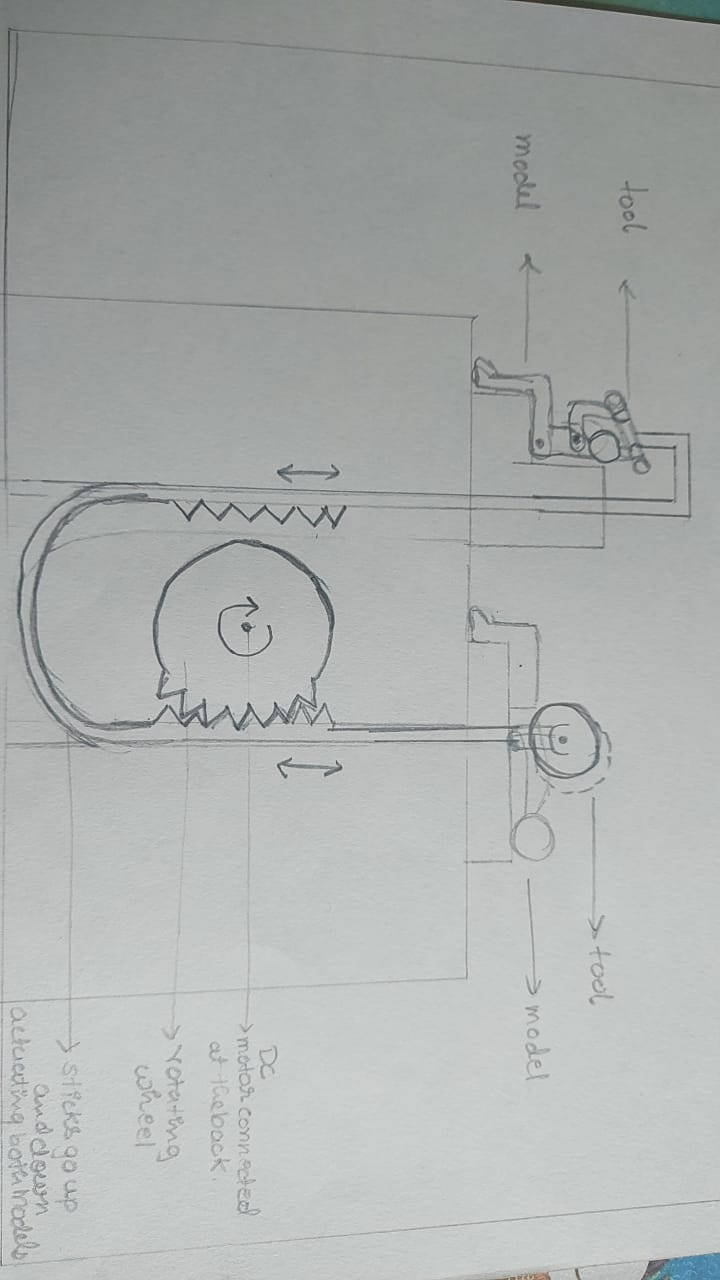 tool
tool
model
model
DC
motor connected
at the back.
rotating
wheel
sticks go up
and down
actuating both models